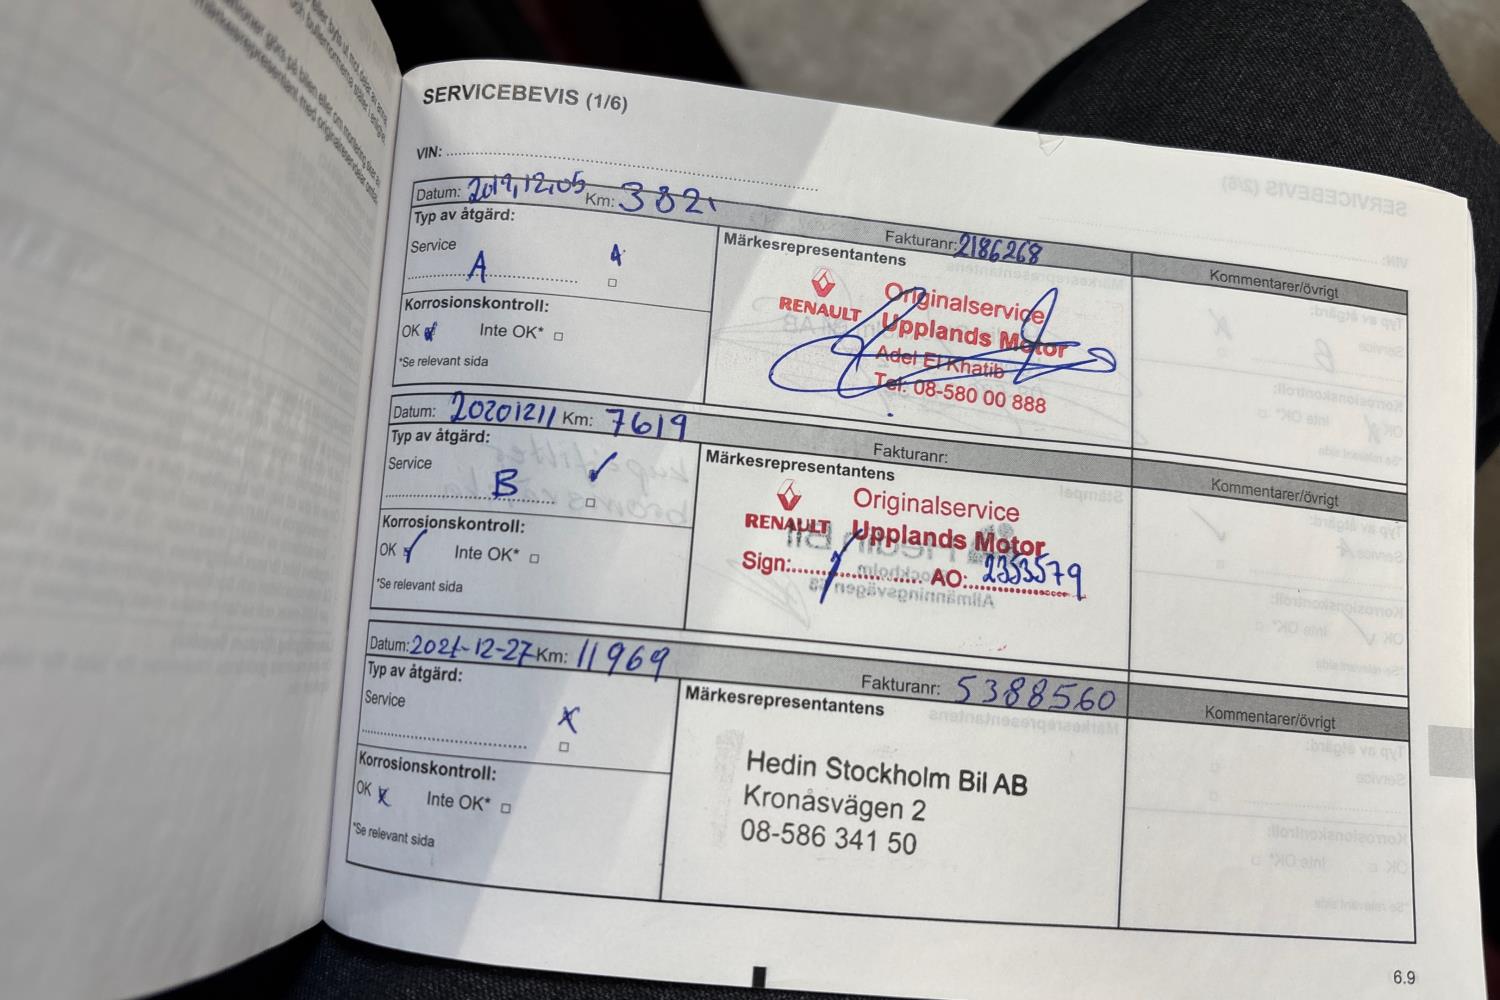 SERVICEBEVIS (1/6)
VIN:
Datum: 2019,12,05 Km: 3821 Fakturanr: 2186268
Typ av åtgärd:
Service
A
Korrosionskontroll:
OK Inte OK*
*Se relevant sida
Märkesrepresentantens
RENAULT
Originalservice
Upplands Motor
Adel El Khatib
Tel: 08-580 00 888
Kommentarer/övrigt
Datum: 20201211 Km: 7619 Fakturanr:
Typ av åtgärd:
Service
B
Korrosionskontroll:
OK Inte OK*
*Se relevant sida
Märkesrepresentantens
RENAULT
Originalservice
Upplands Motor
Sign: AO: 2353579
Kommentarer/övrigt
Datum: 2021-12-27 Km: 11969 Fakturanr: 5388560
Typ av åtgärd:
Service
Korrosionskontroll:
OK Inte OK*
*Se relevant sida
Märkesrepresentantens
Hedin Stockholm Bil AB
Kronåsvägen 2
08-586 341 50
Kommentarer/övrigt
6.9